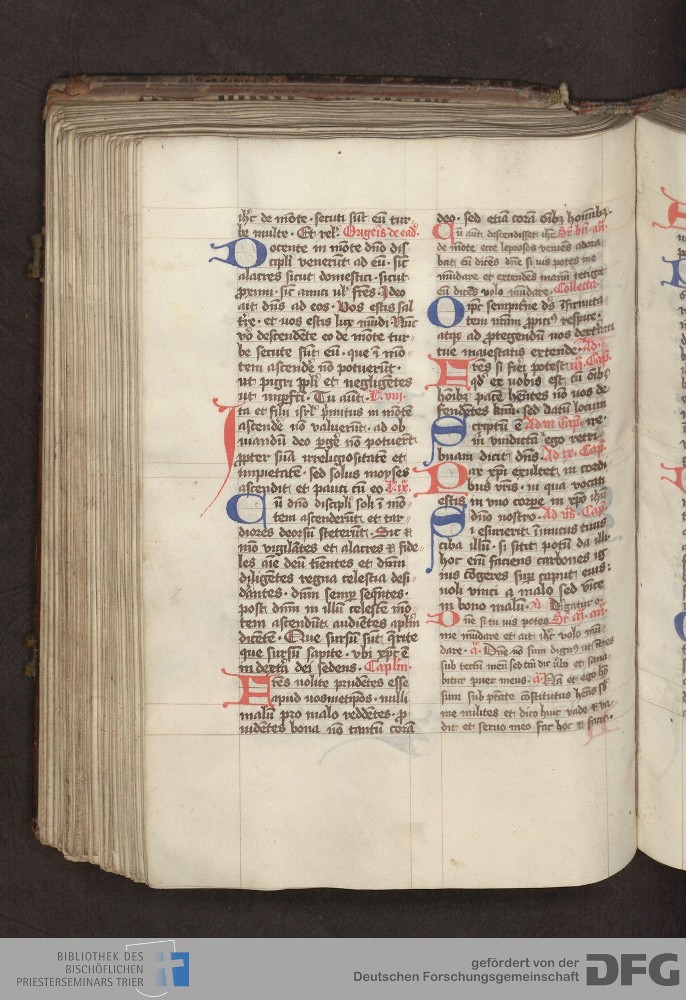 ihc de mōte · secuti sūt eū tur
be multe · Et rel. Origeīs de ead.
Docente in mōte dno dis
cipli venerūt ad eū · sic
alacres sicut domestici · sicut
proximi · sic amici ul fres. Ideo
ait dns ad eos · Vos estis sal
tre · et vos estis lux mūdi. Nūc
vo descendēte eo de mōte tur
be secute sūt eū · que ī mō
tem ascende no potuerūt ·
ut pigri ppli et negligētes
ut impfcti · Tu aūt · L. viii.
Ita et filii isrl primitus in mōte
ascende no valuerūt · ad ob
uiandū deo perge no potuerūt
ppter sua irreligiositatē et
impietatē · sed solus moyses
ascendit et pauci cū eo L. ix.
Cū dno discipli soli ī mō
tem ascenderūt · et tar
diores deorsū steterūt · Sic et
nūc vigilātes et alacres et fide
les que deū tīentes et dnm
diligētes regna celestia desi
dantes · dnm semp seqntes ·
post dnm in illū celestē mō
tem ascendūt audiētes aplm
dicētē · Que sursū sūt qrite
que sursū sapite · vbi xpc ē
in dextra dei sedens. Caplm.
Fres nolite prudētes esse
apud vosmetipos · nulli
malū pro malo reddētes · p
uidētes bona nō tantū corā
deo · sed etiā corā oībz hoībz ·
Cū aūt descendisset ihc
de mōte ecce leprosus veniēs adora
bat eū dicēs dne si vis potes me
mūdare et extendēs manū tetigit
eū dicēs volo mūdare. Collecta
Omps sempitne ds īfirmita
tem nram ppiti respice ·
atqz ad ptegendū nos dextram
tue maiestatis extende · Ad
Fres si fieri potest iii. Cap.
qd ex vobis est cū oībz
hoībz pacē hentes nō vos de
fendētes kmi · sed datū locum
Scriptū ē Ad vi Cap. ire ·
mi vindictā ego retri
buam dicit dns. Ad ix. Cap.
Pax xpi exultet in cordi
bus vris · in qua vocati
estis in vno corpe in xpo ihu
dno nostro. Ad vs. Cap.
Si esurierit inimicus tuus
ciba illū · si sitit potū da illi ·
hoc eni faciens carbones ig
nis cōgeres supr caput eius ·
noli vinci a malo sed vīce
in bono malū · V. Dirigatur o.
Dne si tu vis potes
me mūdare et ait ihc volo mū
dare · a. Dne nō sum dignus ut ītres
sub tectū meū sed tm dic vbo et sana
bitur puer meus · a. Nā et ego ho
sum sub ptate cōstitutus hens sb
me milites et dico huic vade et va
dit et seruo meo fac hoc et facit ·
BIBLIOTHEK DES
BISCHÖFLICHEN
PRIESTERSEMINARS TRIER
gefördert von der
Deutschen Forschungsgemeinschaft DFG